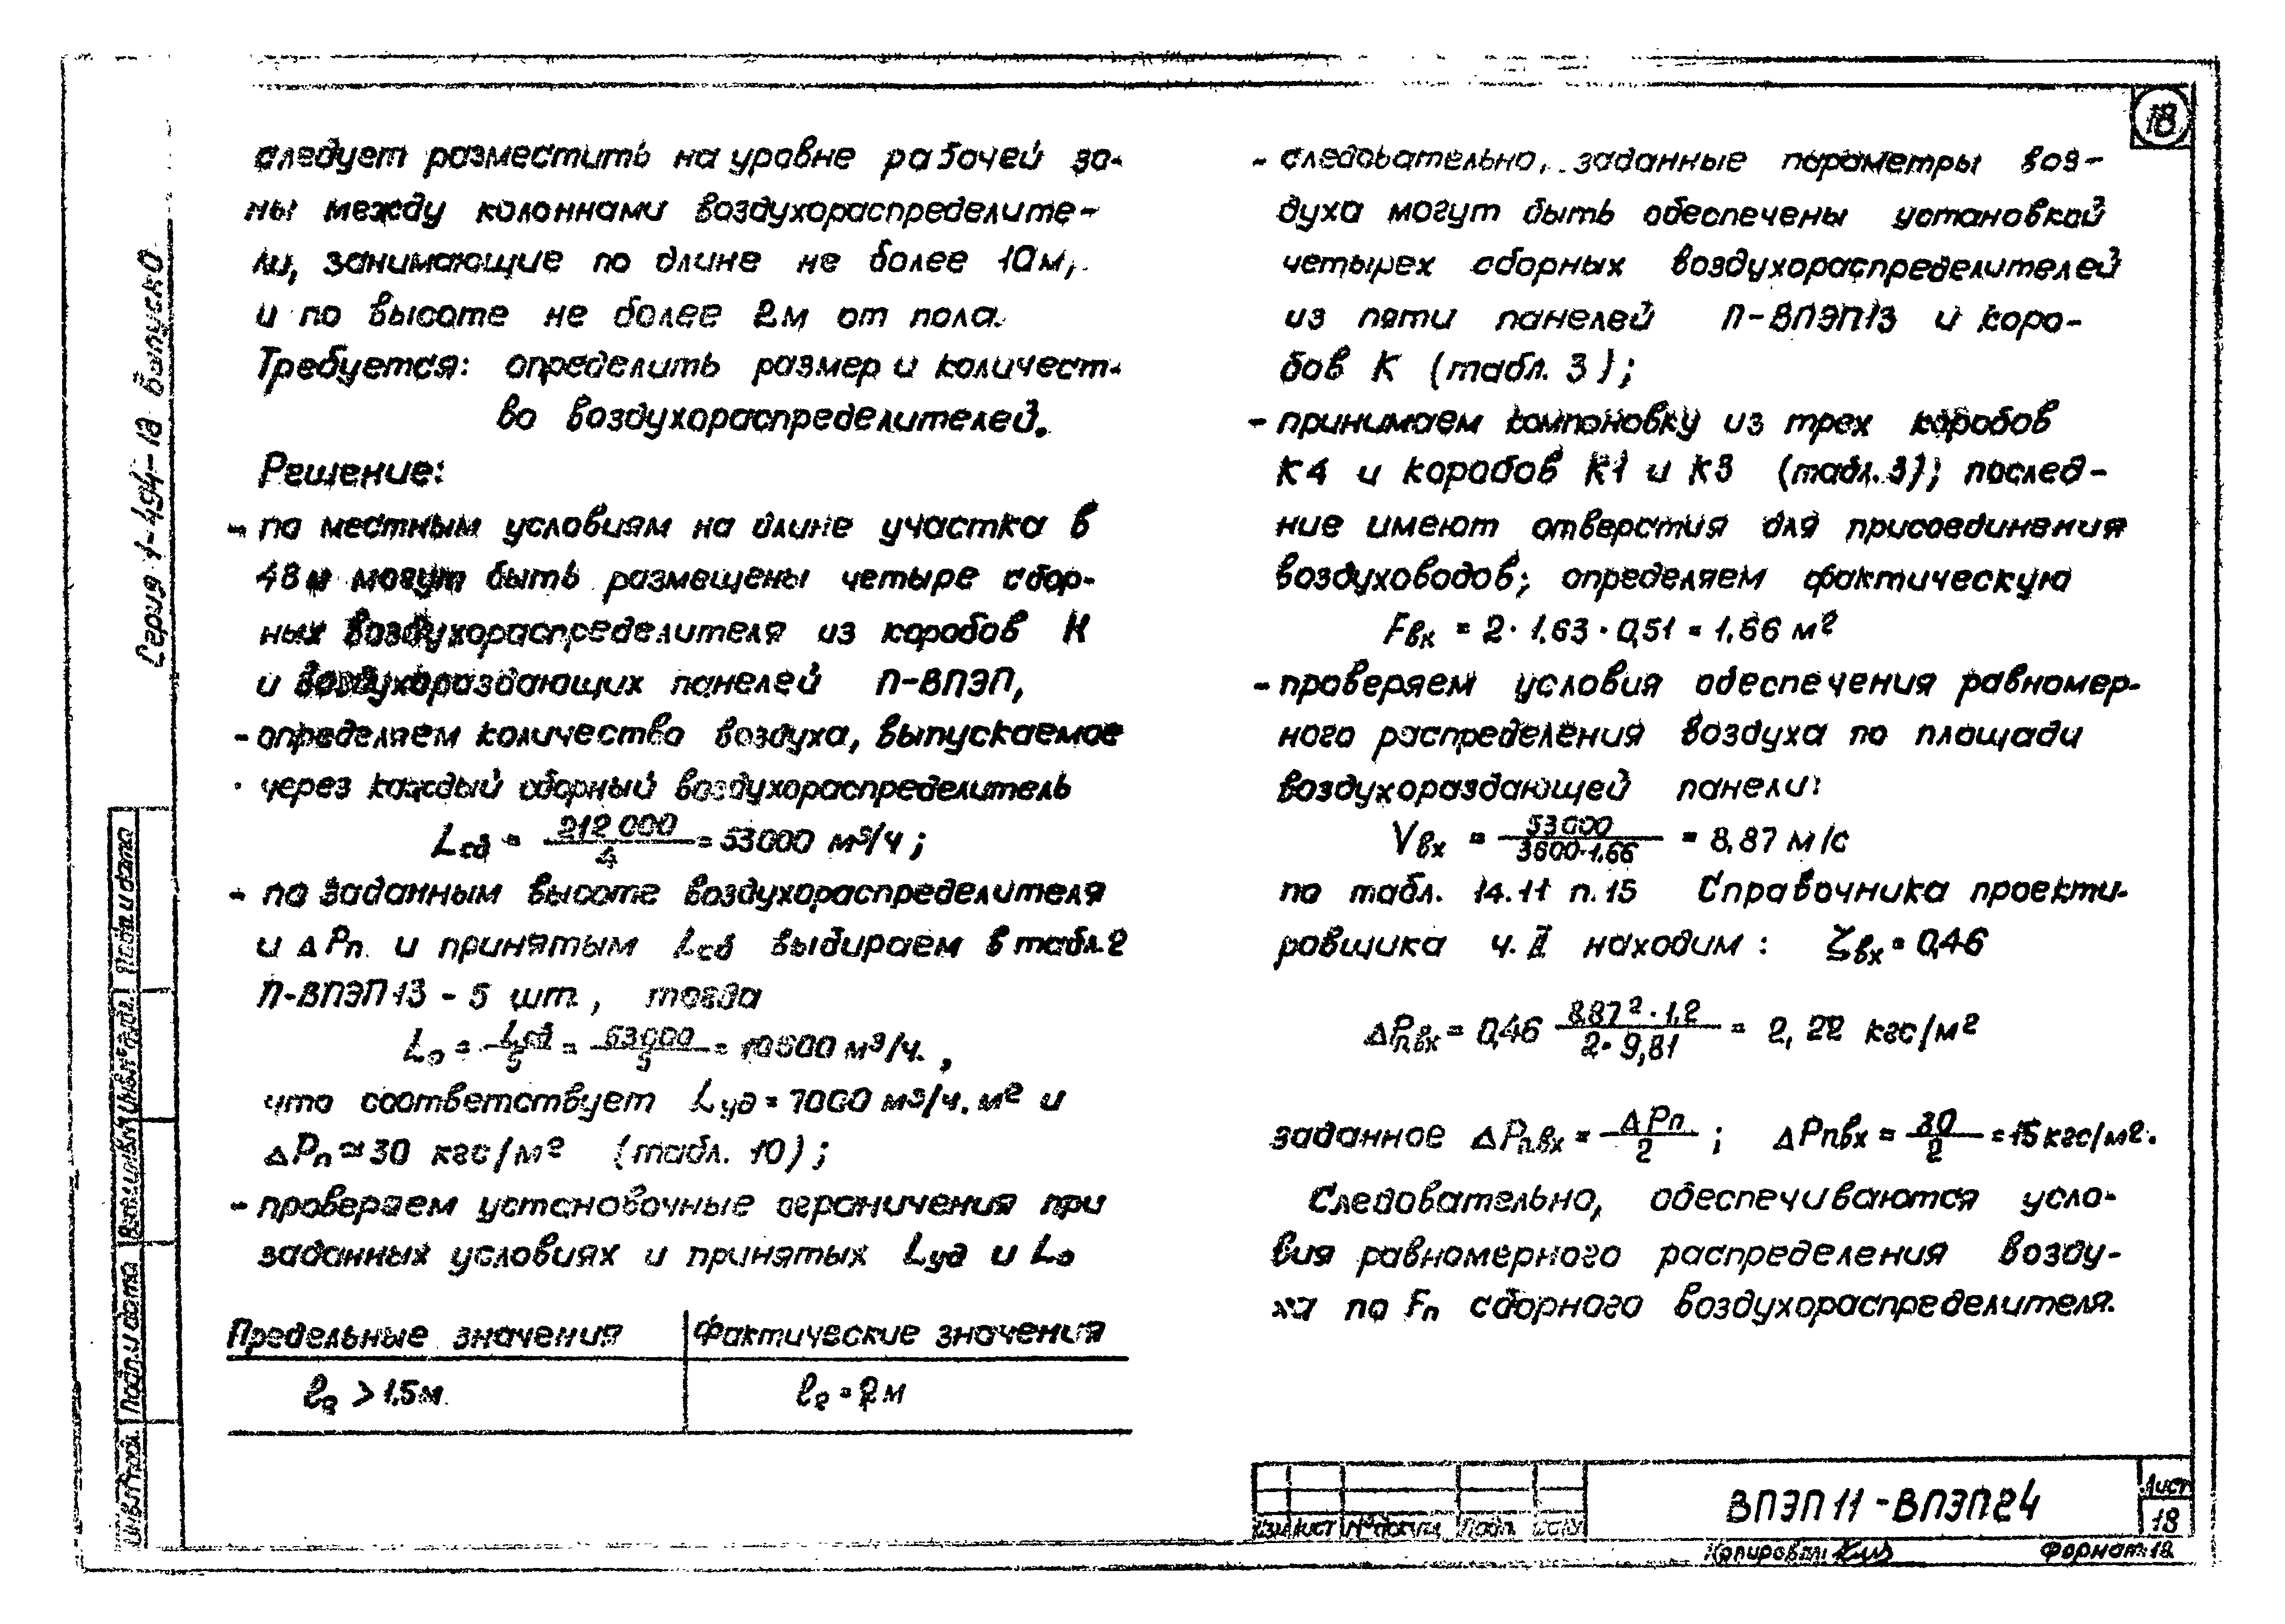 18
следует разместить на уровне рабочей зо-
ны между колоннами воздухораспределите-
ли, занимающие по длине не более 10м,
и по высоте не более 2м от пола.
Требуется: определить размер и количест-
во воздухораспределителей.
Решение:
- по местным условиям на длине участка в
48м могут быть размещены четыре сбор-
ных воздухораспределителя из коробов К
и воздухораздающих панелей П-ВПЭП,
- определяем количество воздуха, выпускаемое
через каждый сборный воздухораспределитель
Lсб = 212 000 / 4 = 53000 м³/ч;
- по заданным высоте воздухораспределителя
и ΔPп и принятым Lсб выбираем в табл. 2
П-ВПЭП13 - 5 шт., тогда
Lо = Lсб / 5 = 53000 / 5 = 10600 м³/ч.,
что соответствует Lуд = 7000 м³/ч.м² и
ΔPп ≃ 30 кгс/м² (табл. 10);
- проверяем установочные ограничения при
заданных условиях и принятых Lуд и Lо
Предельные значения | Фактические значения
ℓ₂ > 1,5м | ℓ₂ = 2м
- следовательно, заданные параметры воз-
духа могут быть обеспечены установкой
четырех сборных воздухораспределителей
из пяти панелей П-ВПЭП13 и коро-
бов К (табл. 3);
- принимаем компоновку из трех коробов
К4 и коробов К1 и К3 (табл. 3); послед-
ние имеют отверстия для присоединения
воздуховодов; определяем фактическую
Fвх = 2·1,63·0,51 = 1,66 м²
- проверяем условия обеспечения равномер-
ного распределения воздуха по площади
воздухораздающей панели:
Vвх = 53000 / 3600·1,66 = 8,87 м/с
по табл. 14.11 п.15 Справочника проекти-
ровщика ч. II находим: ζвх = 0,46
ΔPп.вх = 0,46 8,87²·1,2 / 2·9,81 = 2,22 кгс/м²
заданное ΔPп.вх = ΔPп / 2; ΔPпвх = 30 / 2 = 15 кгс/м².
Следовательно, обеспечиваются усло-
вия равномерного распределения возду-
ха по Fп сборного воздухораспределителя.
Серия 1-494-18 Выпуск 0
Подп. и дата
Взам. инв. №
Подп. и дата
Инв. № подл.
Изм Лист № докум. Подп.
ВПЭП 11 - ВПЭП 24
Лист
18
Копировал:
Формат: 12